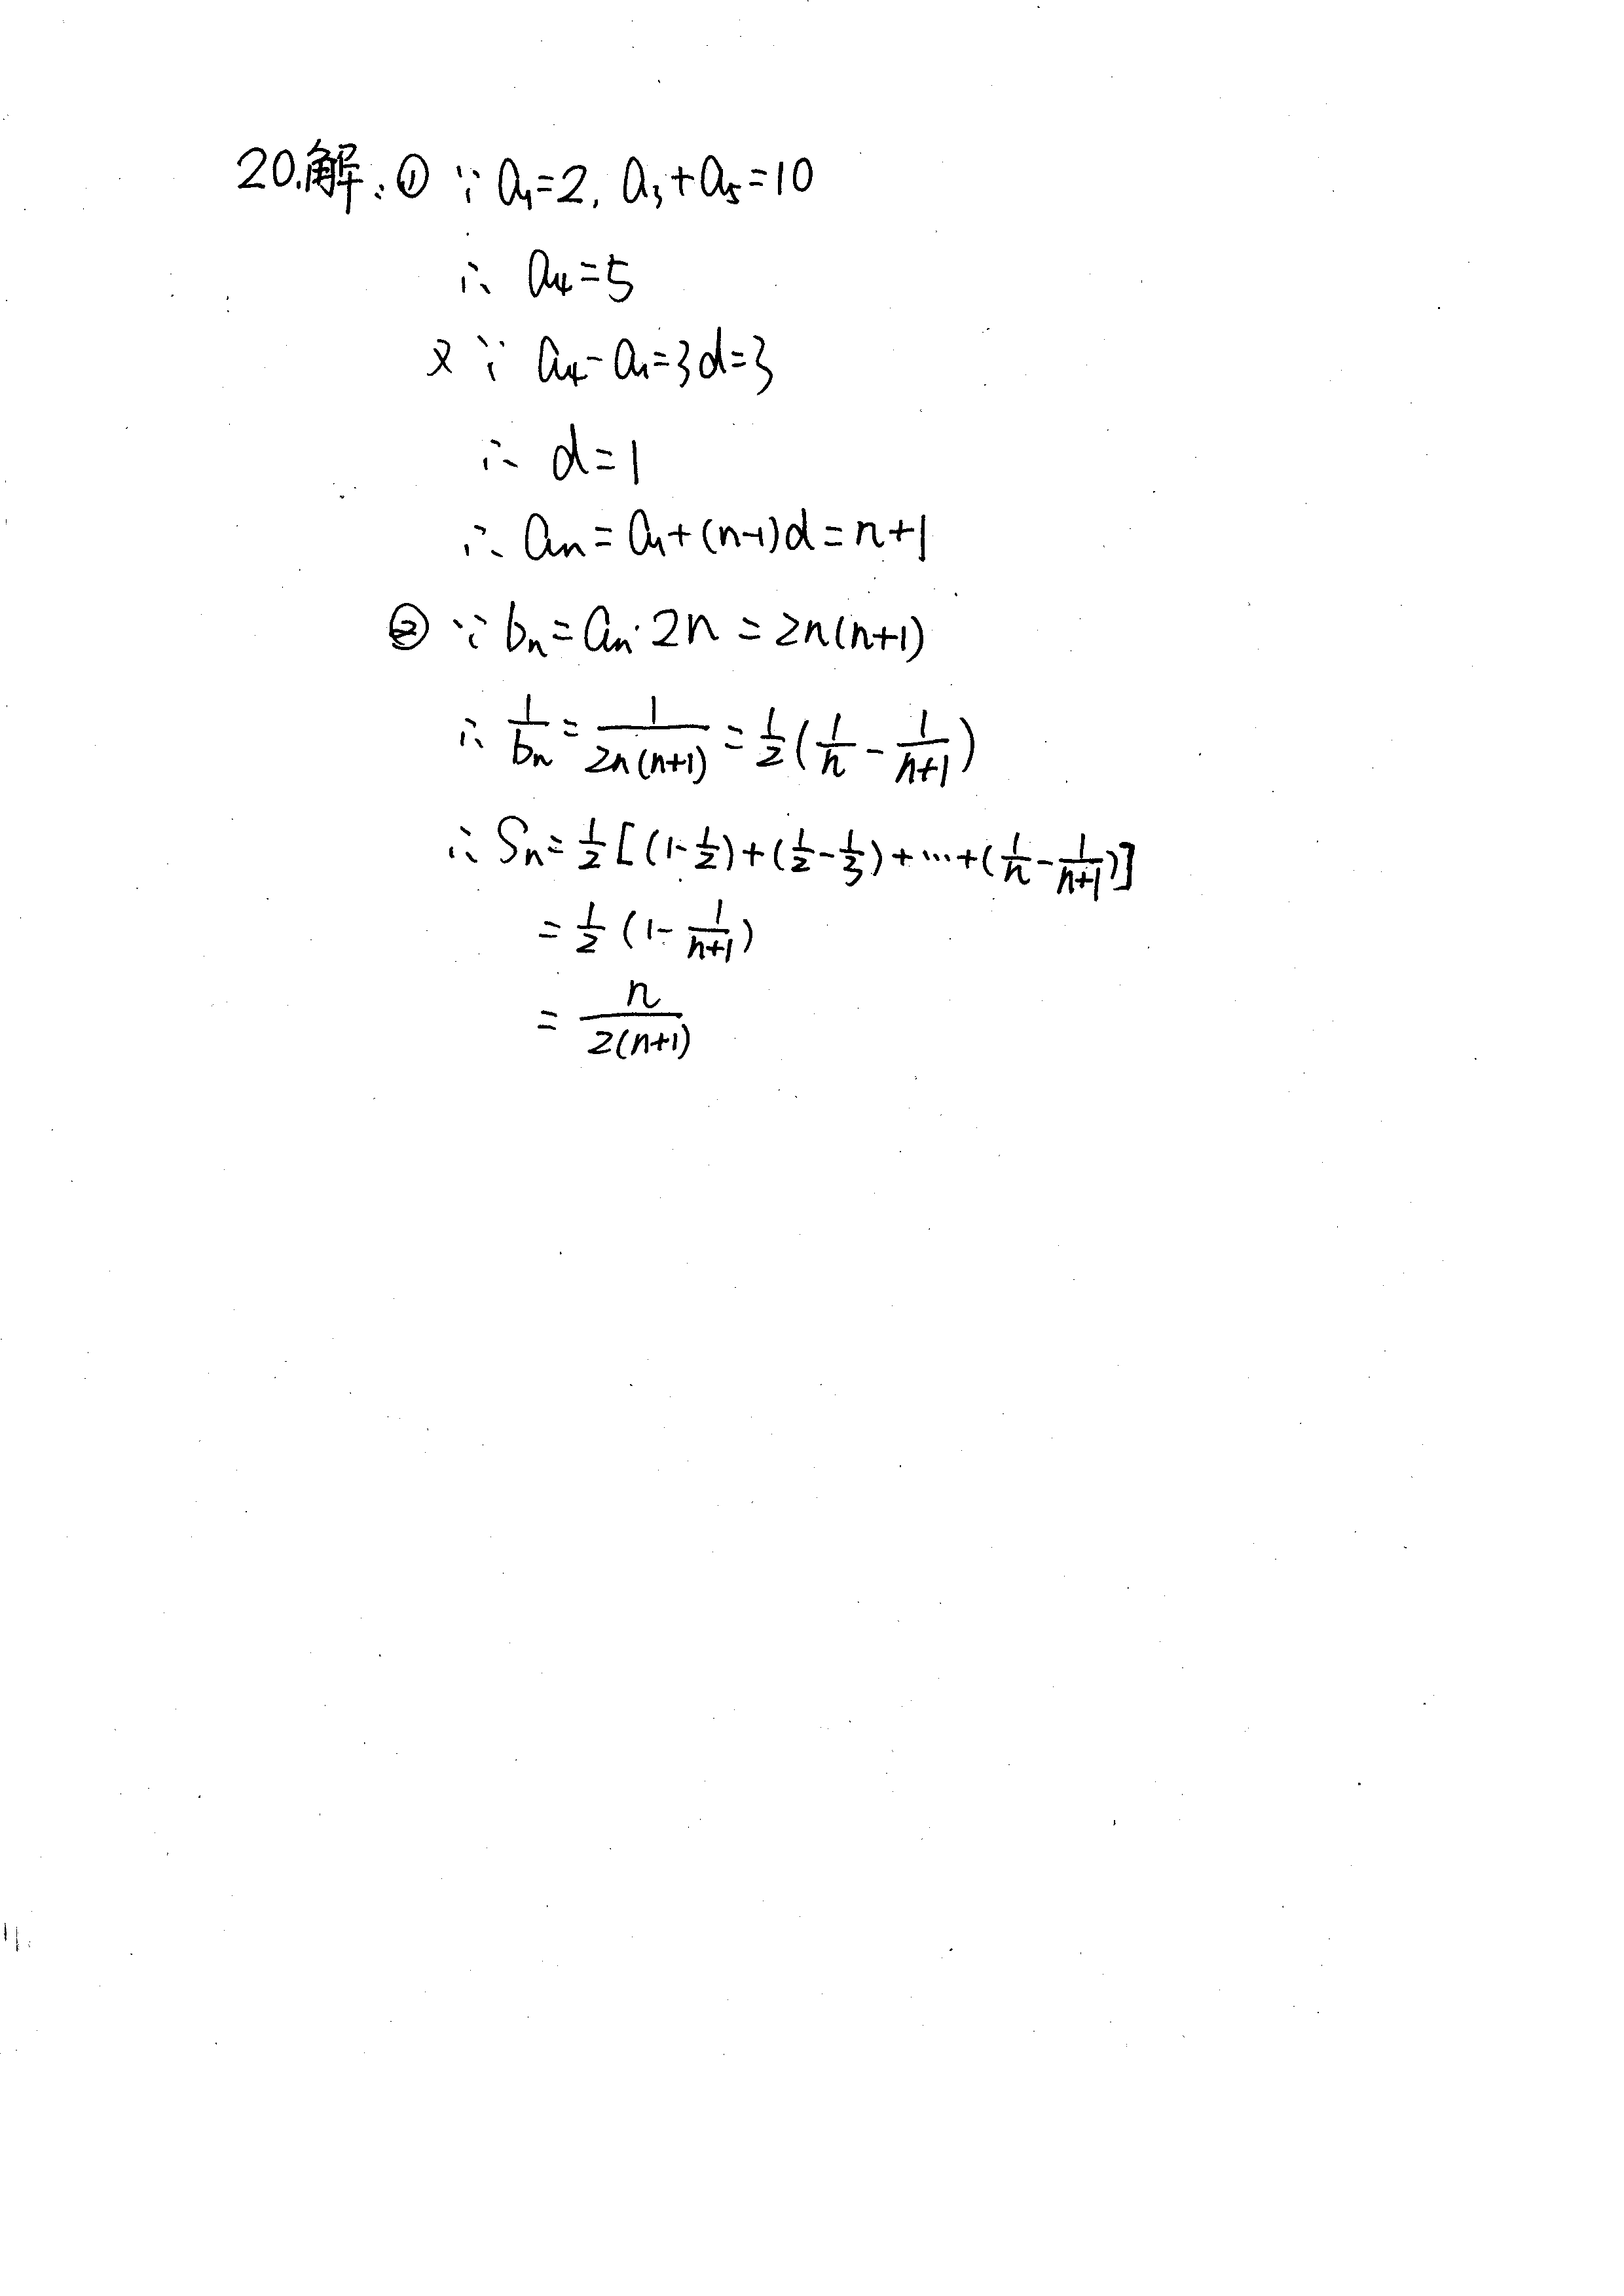 20.解：① ∵ a₁=2, a₃+a₅=10
∴ a₄=5
又∵ a₄-a₁=3d=3
∴ d=1
∴ aₙ=a₁+(n-1)d=n+1
② ∵ bₙ=aₙ·2n=2n(n+1)
∴ 1/bₙ=1/2n(n+1)=1/2(1/n-1/n+1)
∴ Sₙ=1/2[(1-1/2)+(1/2-1/3)+…+(1/n-1/n+1)]
=1/2(1-1/n+1)
=n/2(n+1)